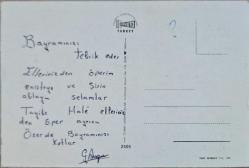 TURKEY
?
Bayramınızı
tebrik eder
Ellerinizden öperim
enişteye ve
ablaya selamlar
Tayibe Halé ellerini
den öper ayrıca
Özer de Bayramınızı
Kutlar